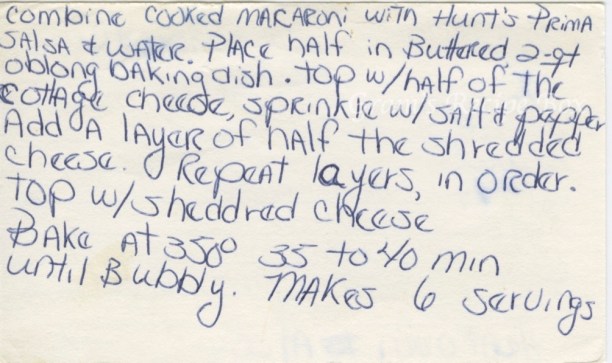 combine cooked MACARONi with Hunt's PRimA
SAlSA & WATER. PlACE hAlf in Buttered 2-qt
oblong bAking dish. top w/hAlf of The
cottAge cheese, sprinkle w/ SAlt & pepper
Add A lAyer of hAlf the shredded
cheese. Repeat layers, in order.
TOP w/sheddred cheese
BAke At 350° 35 to 40 min
until Bubbly. MAKes 6 servings